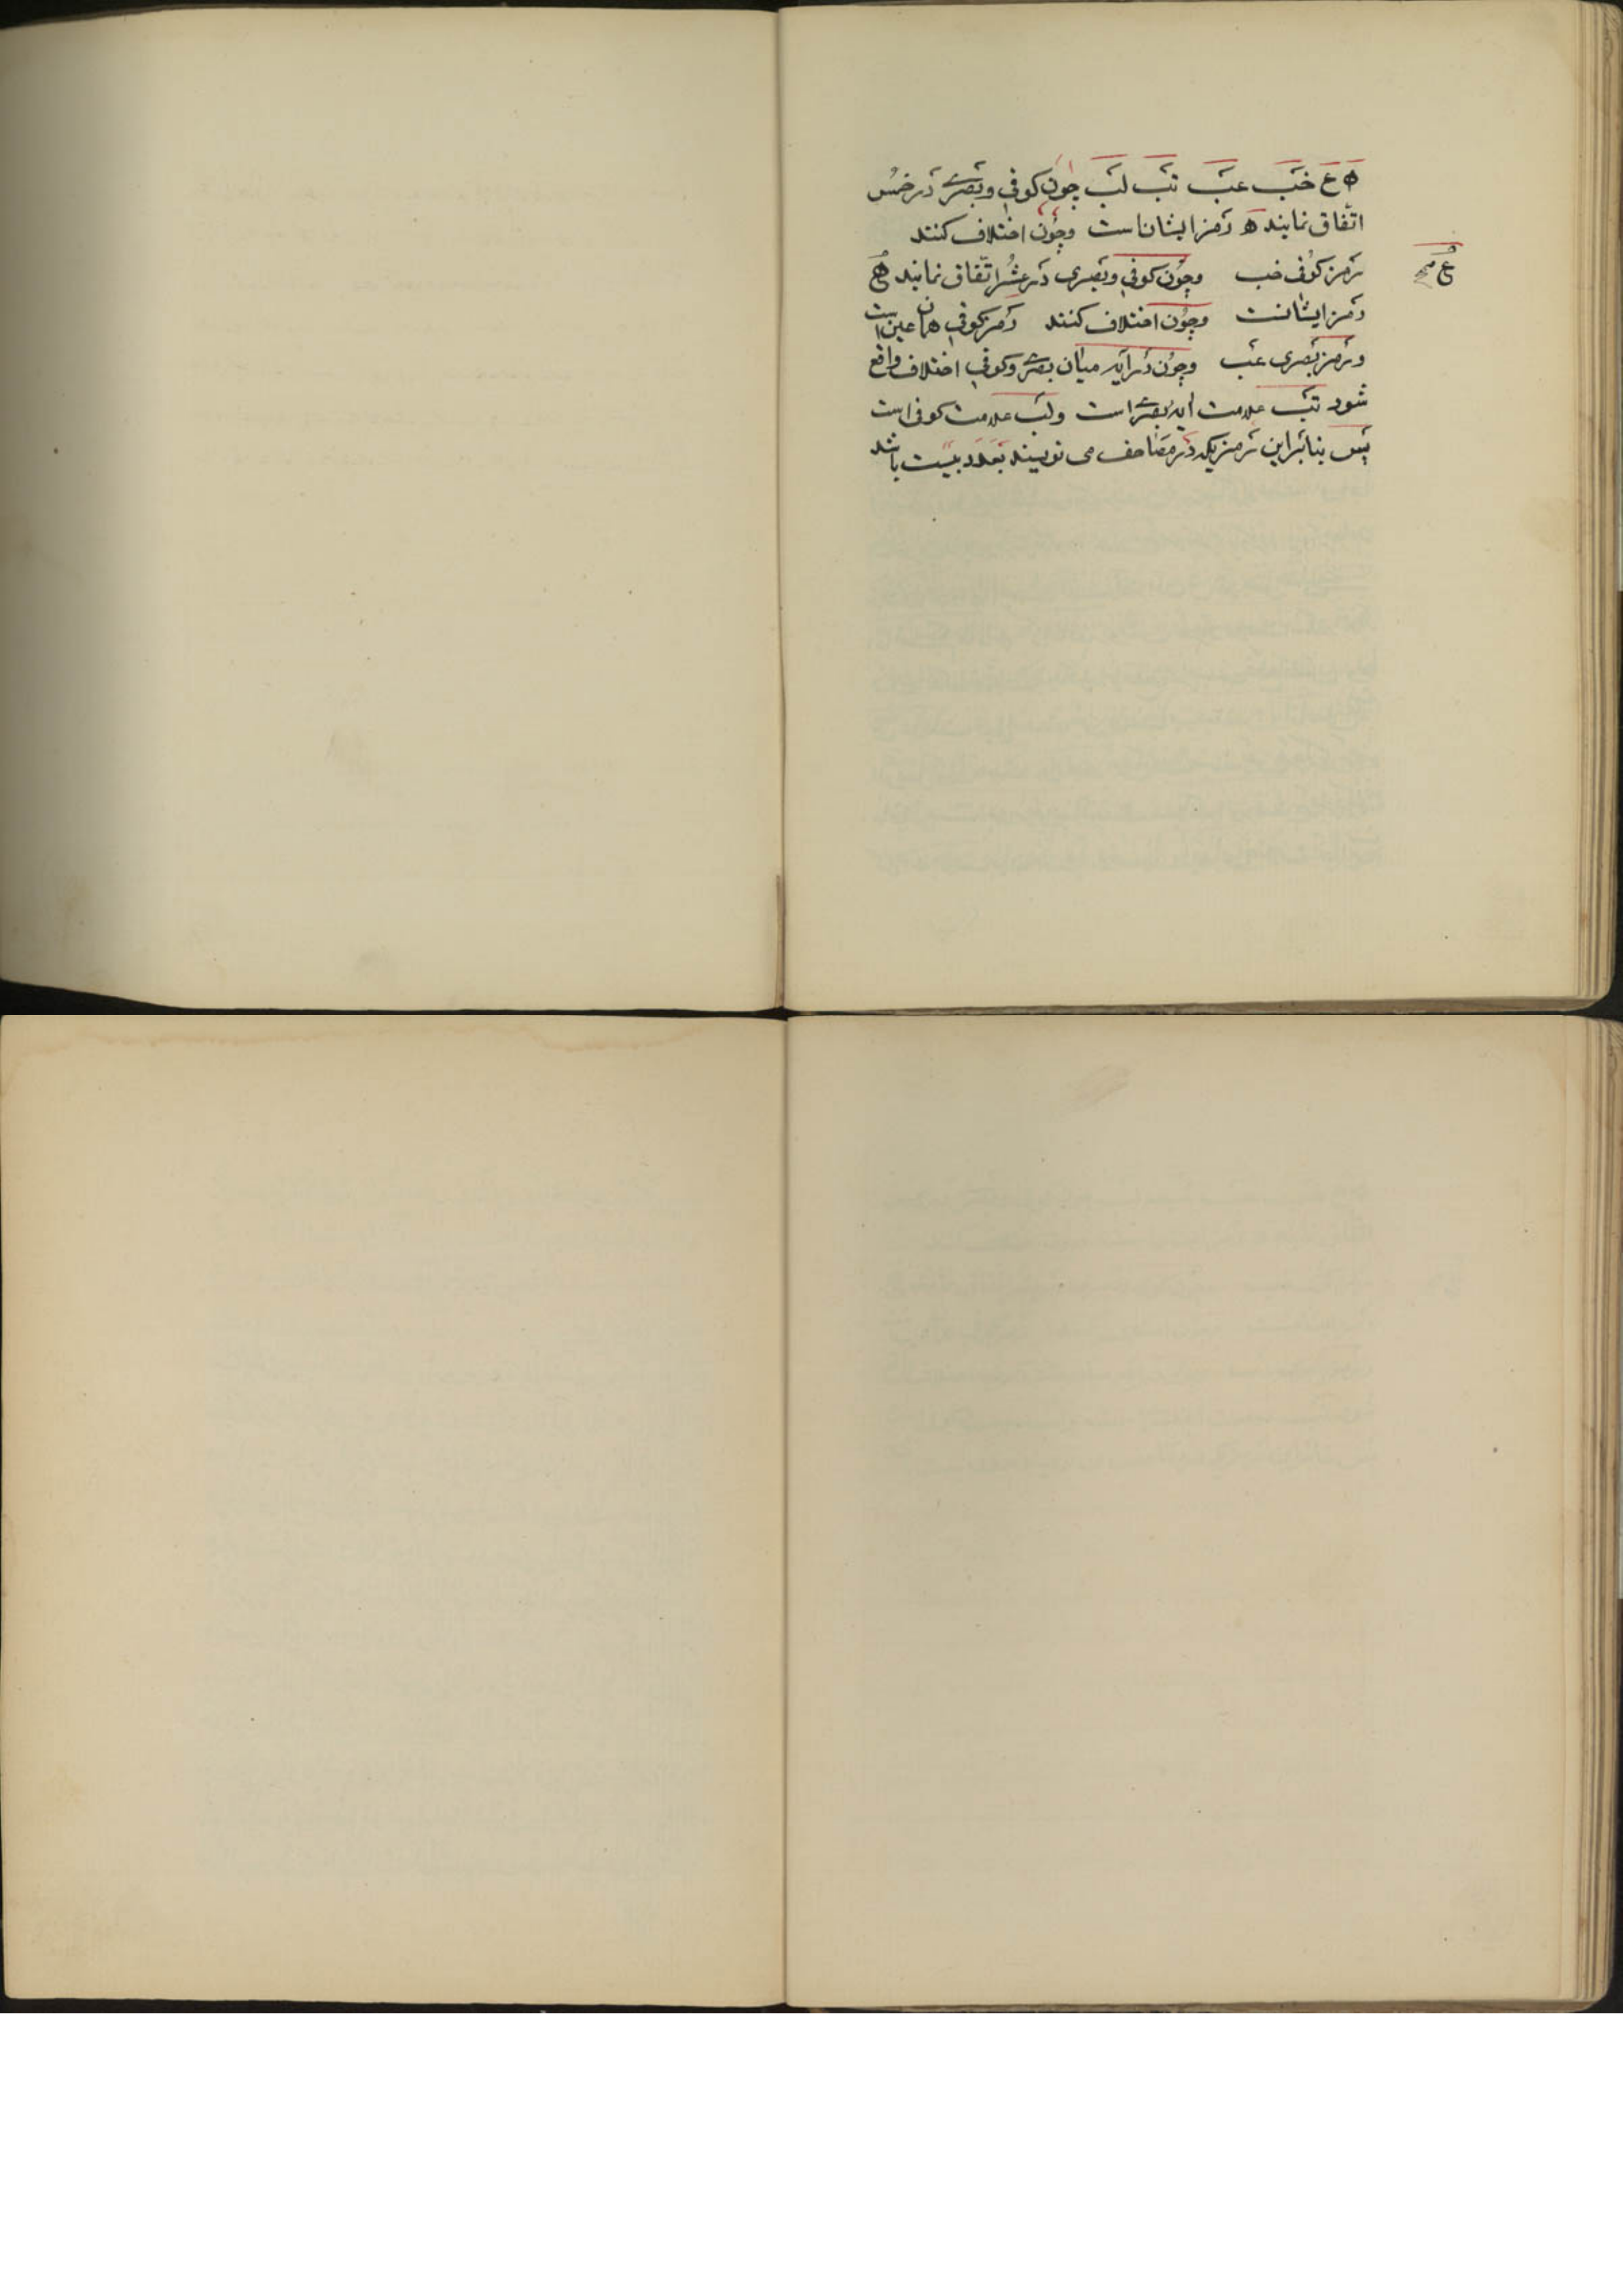 ه ع خب عب تب لب چون كوفي و بصرى در خمس
اتّفاق نمایند ه رمز ایشان است وچون اختلاف کنند
رمز کوفی خب وچون کوفي وبصری در عشر اتّفاق نمایند
رمز ایشانست وچون اختلاف کنند رمز کوفي همان عین است
ورمز بصری عب وچون در آیه میان بصرى وکوفي اختلاف واقع
شود تب علامت آیه بصرى است ولب علامت کوفی است
پس بنابر این رمز یکه در مصاحف می نویسند بعدد بیست باشد
ع صح